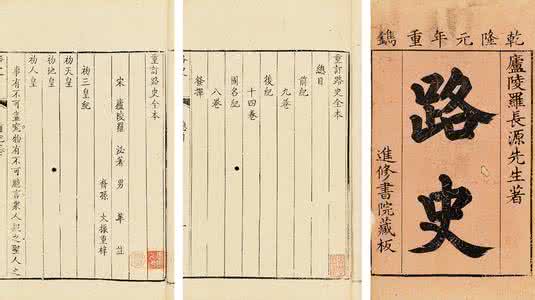 乾隆元年重鐫
廬陵羅長源先生著
路史
進修書院藏板
重訂路史全本
總目
前紀
九卷
後紀
十四卷
國名紀
八卷
發揮
重訂路史全本
宋 廬陵羅 泌著 男 苹 註
裔孫 大振重梓
初三皇紀
初天皇
初地皇
初人皇
事有不可盡究物有不可臆言衆人疑之聖人之